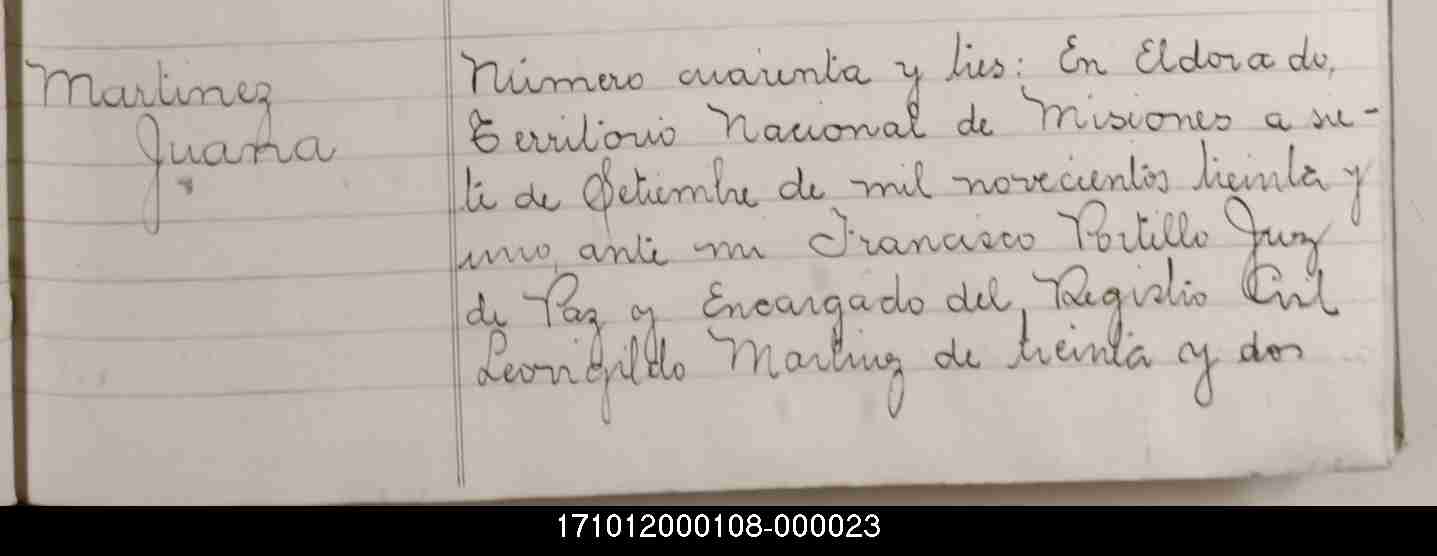 Martinez
Juana
Número cuarenta y tres: En Eldorado,
Territorio Nacional de Misiones a sie-
te de Setiembre de mil novecientos treinta y
uno, ante mi Francisco Portillo Juez
de Paz y Encargado del Registro Civil
Leovigildo Martinez de treinta y dos
171012000108-000023